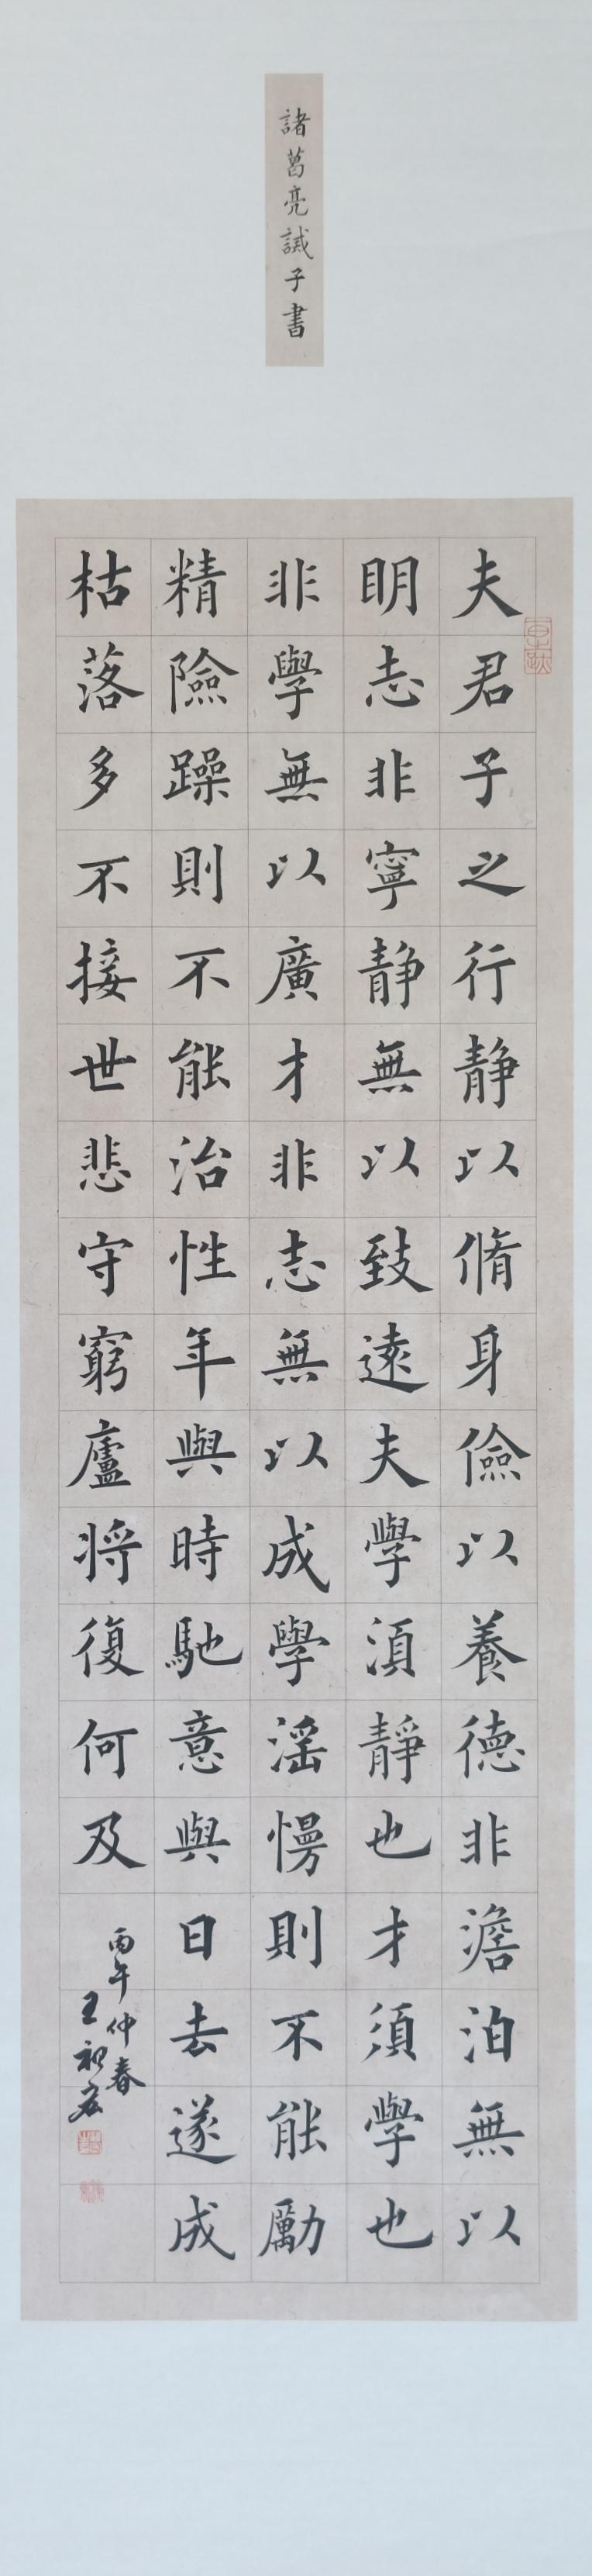 諸葛亮誡子書
夫君子之行静以脩身儉以養德非澹泊無以
明志非寧静無以致遠夫學須靜也才須學也
非學無以廣才非志無以成學滛慢則不能勵
精險躁則不能治性年與時馳意與日去遂成
枯落多不接世悲守窮廬将復何及
丙午仲春
王